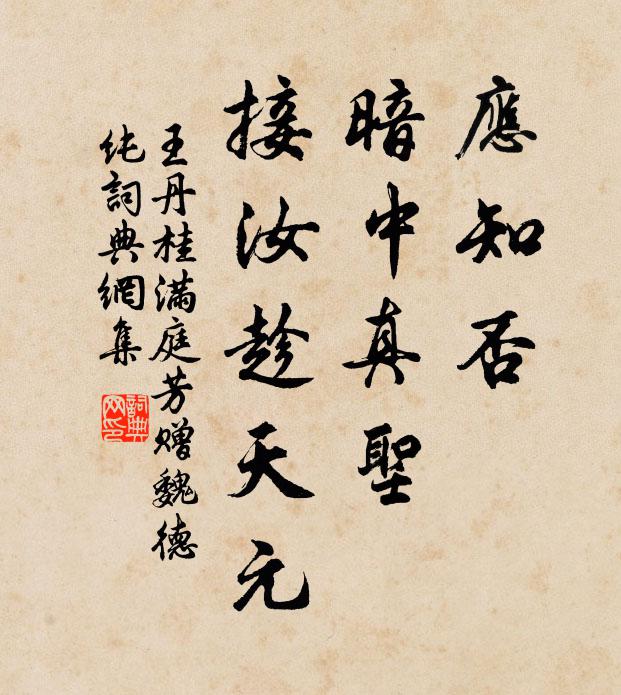 應知否
暗中真聖
接汝趁天元
王丹桂滿庭芳贈魏德
純詞典網集
詞典
网印